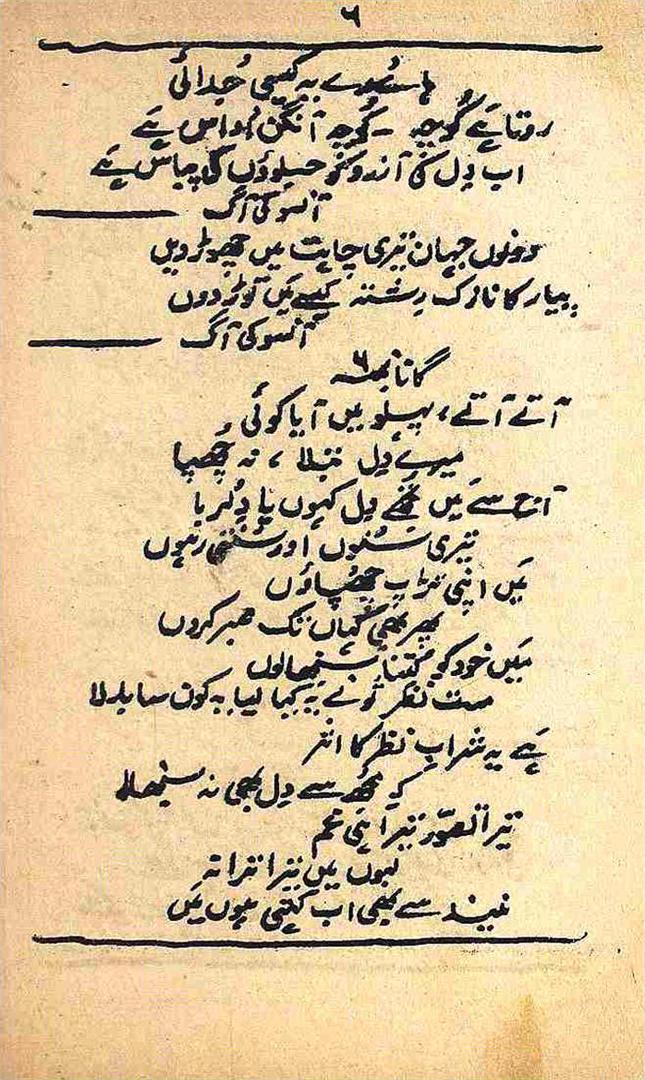 ۶
ہائے رے یہ کیسی جُدائی
روتا ہے کُوچہ ۔ کُوچہ آنگن اُداس ہے
اب دِل کی آرزو کو جلوؤں کی پیاس ہے
آنسو کی آگ
دونوں جہان تیری چاہت میں چھوڑ دیں
پیار کا نازک رِشتہ کیسے میں توڑ دوں
آنسو کی آگ
گانا نمبر ۶
آتے آتے، پہلو میں آیا کوئی
میرے دِل بتلا، نہ چُھپا
آج سے میں تجھے دِل کہوں یا دِلربا
تیری سُنوں اور سُنتی رہوں
میں اپنی تڑپ چھُپاؤں
پھر بھی کہاں تک صبر کروں
میں خود کو کتنا سنبھالوں
مست نظر تُو نے یہ کیا کیا یہ کون سا بدلا
ہے یہ شراب نظر کا اثر
کہ مُجھ سے دِل بھی نہ سنبھالا
تیرا تصوّر تیرا ہی غم
لبوں میں تیرا ترانہ
نیند سے بھی اب کہتی ہوں میں